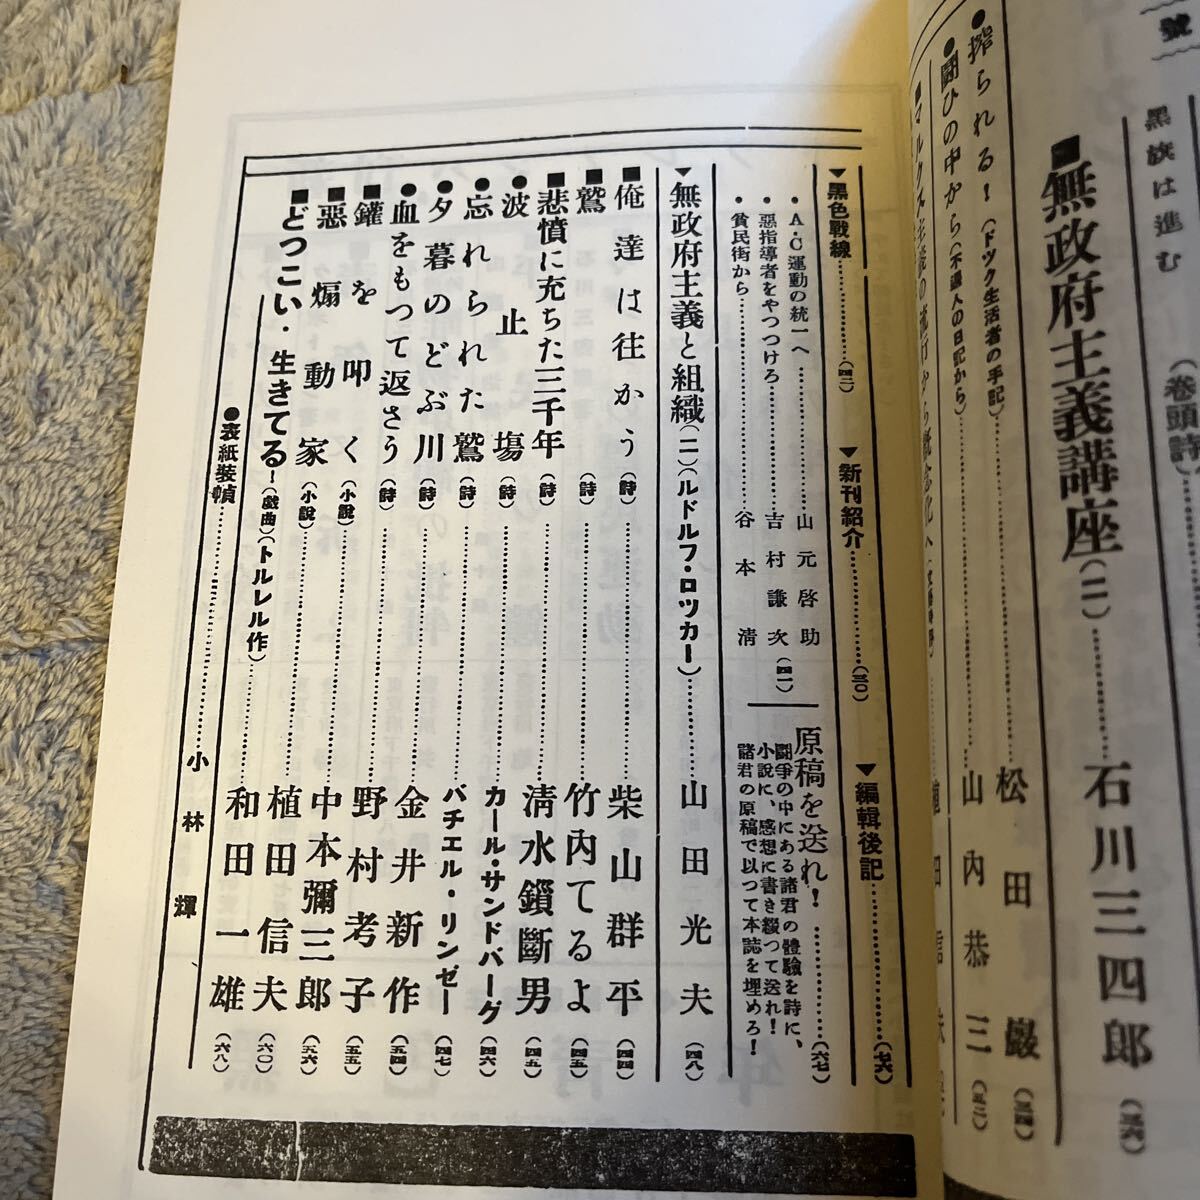 號
黑旗は進む(卷頭詩)
■無政府主義講座(二)……石川三四郎(三六)
●搾られる!(ドツク生活者の手記)……松田巖(三四)
●闘ひの中から(不逞人の日記から)……山内恭三(三二)
■マルクス主義の流行から概念化へ(文藝時評)……植田信夫
▼黑色戰線……(四二) ▼新刊紹介……(三〇) ▼編輯後記……(七六)
・A・C運動の統一へ……山元啓助
・惡指導者をやつつけろ……吉村謙次(四一)
・貧民街から……谷本淸
原稿を送れ!……(六七)
闘爭の中にある諸君の體驗を詩に、
小說に、感想に書き綴つて送れ!
諸君の原稿で以つて本誌を埋めろ!
▼無政府主義と組織(二)(ルドルフ・ロツカー)……山田光夫(四八)
■俺達は往かう(詩)……柴山群平(四四)
■鷲(詩)……竹内てるよ(四五)
■悲憤に充ちた三千年(詩)……淸水鎖斷男(四五)
●波止塲(詩)……カール・サンドバーグ(四六)
●忘れられた鷲(詩)……バチエル・リンゼー(四七)
●夕暮のどぶ川(詩)……金井新作(五四)
●血をもつて返さう(詩)……野村考子(五五)
■鑵を叩く(小說)……中本彌三郎(五六)
■惡煽動家(小說)……植田信夫(六〇)
■どつこい・生きてる!(戯曲)(トルレル作)……和田一雄(六八)
●表紙裝幀……小林輝